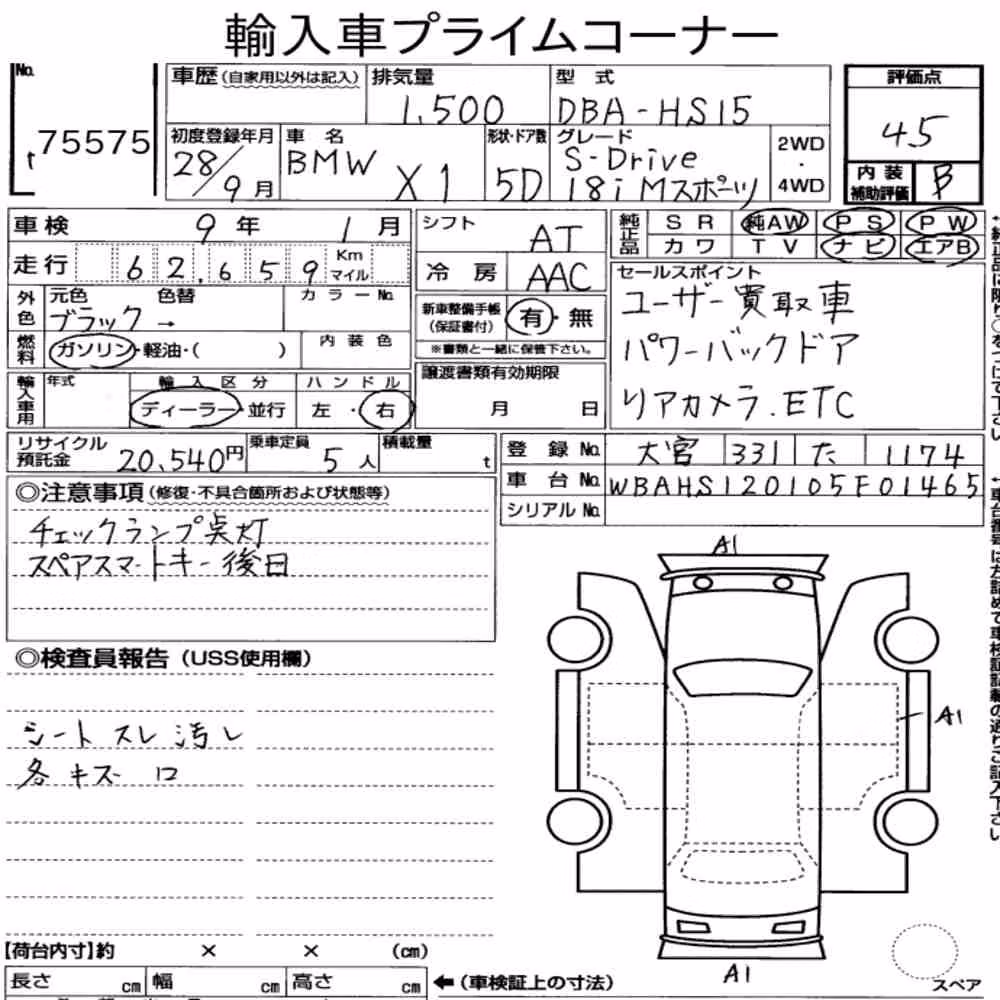 輸入車プライムコーナー
No. t 75575
車歴(自家用以外は記入) 排気量 1,500 型式 DBA-HS15
初度登録年月 28/9月 車名 BMW X1 形状・ドア数 5D グレード S-Drive 18i Mスポーツ 2WD・4WD
評価点 4.5
内装補助評価 B
車検 9年 1月
走行 62,659 Km マイル
シフト AT
冷房 AAC
純正品 SR 純AW PS PW
カワ TV ナビ エアB
外色 元色 ブラック 色替 → カラーNo.
燃料 ガソリン・軽油・( ) 内装色
新車整備手帳(保証書付) 有・無
※書類と一緒に保管下さい。
セールスポイント
ユーザー買取車
パワーバックドア
リアカメラ.ETC
輸入車用 年式 輸入区分 ディーラー・並行 ハンドル 左・右
譲渡書類有効期限 月 日
リサイクル預託金 20,540円 乗車定員 5人 積載量 t
登録No. 大宮 331 た 1174
車台No. WBAHS120105F01465
シリアルNo.
◎注意事項(修復・不具合箇所および状態等)
チェックランプ点灯
スペアスマートキー後日
◎検査員報告(USS使用欄)
シートスレ汚レ
各キズ ロ
A1
A1
A1
【荷台内寸】約 × × (cm)
長さ cm 幅 cm 高さ cm ←(車検証上の寸法)
スペア